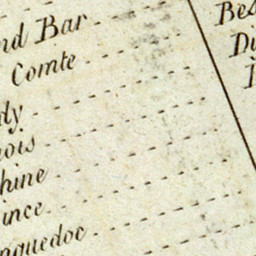 nd Bar
Comte
dy
ois
hine
ince
nguedoc
Bes
Di